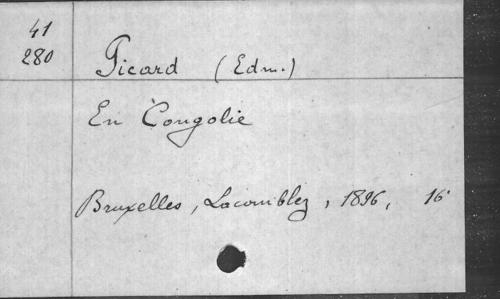 41
280
Picard (Edm.)
En Congolie
Bruxelles, Lacomblez, 1896, 16°